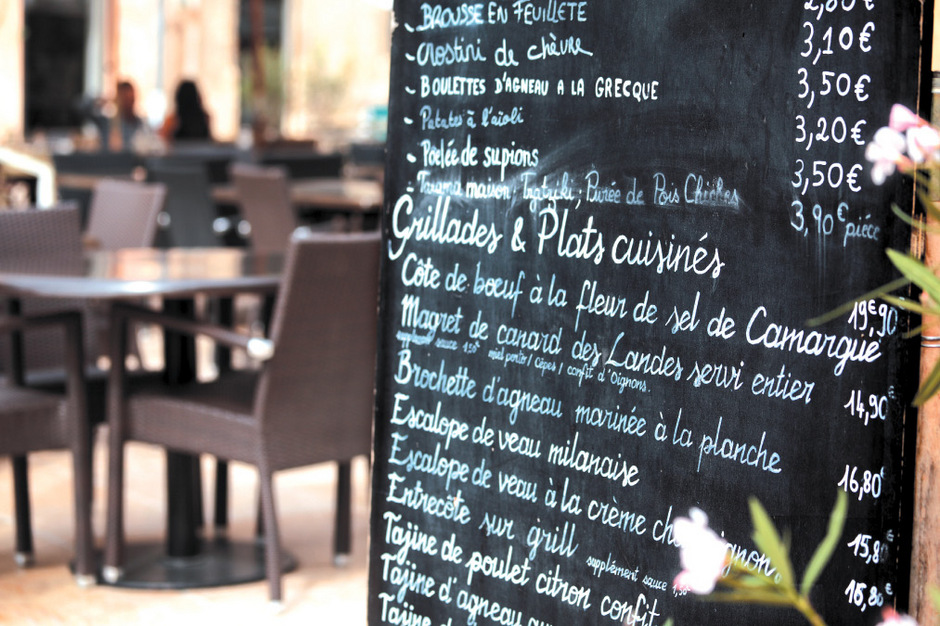 - BROUSSE EN FEUILLETÉ
- Crostini de chèvre 3,10€
- BOULETTES D'AGNEAU A LA GRECQUE 3,50€
- Patates à l'aïoli 3,20€
- Poelée de supions 3,50€
- Tarama maison, Tzatziki, Purée de Pois Chiches 3,90€ pièce
Grillades & Plats cuisinés
Côte de boeuf à la fleur de sel de Camargue 19€90
Magret de canard des Landes servi entier 14,90€
supplément sauce 1,50€ miel porto / Cèpes / confit d'Oignons.
Brochette d'agneau marinée à la planche 16,80€
Escalope de veau milanaise
Escalope de veau à la crème 15,80€
Entrecôte sur grill supplément sauce 15,80€
Tajine de poulet citron confit
Tajine d'agneau
Tajine